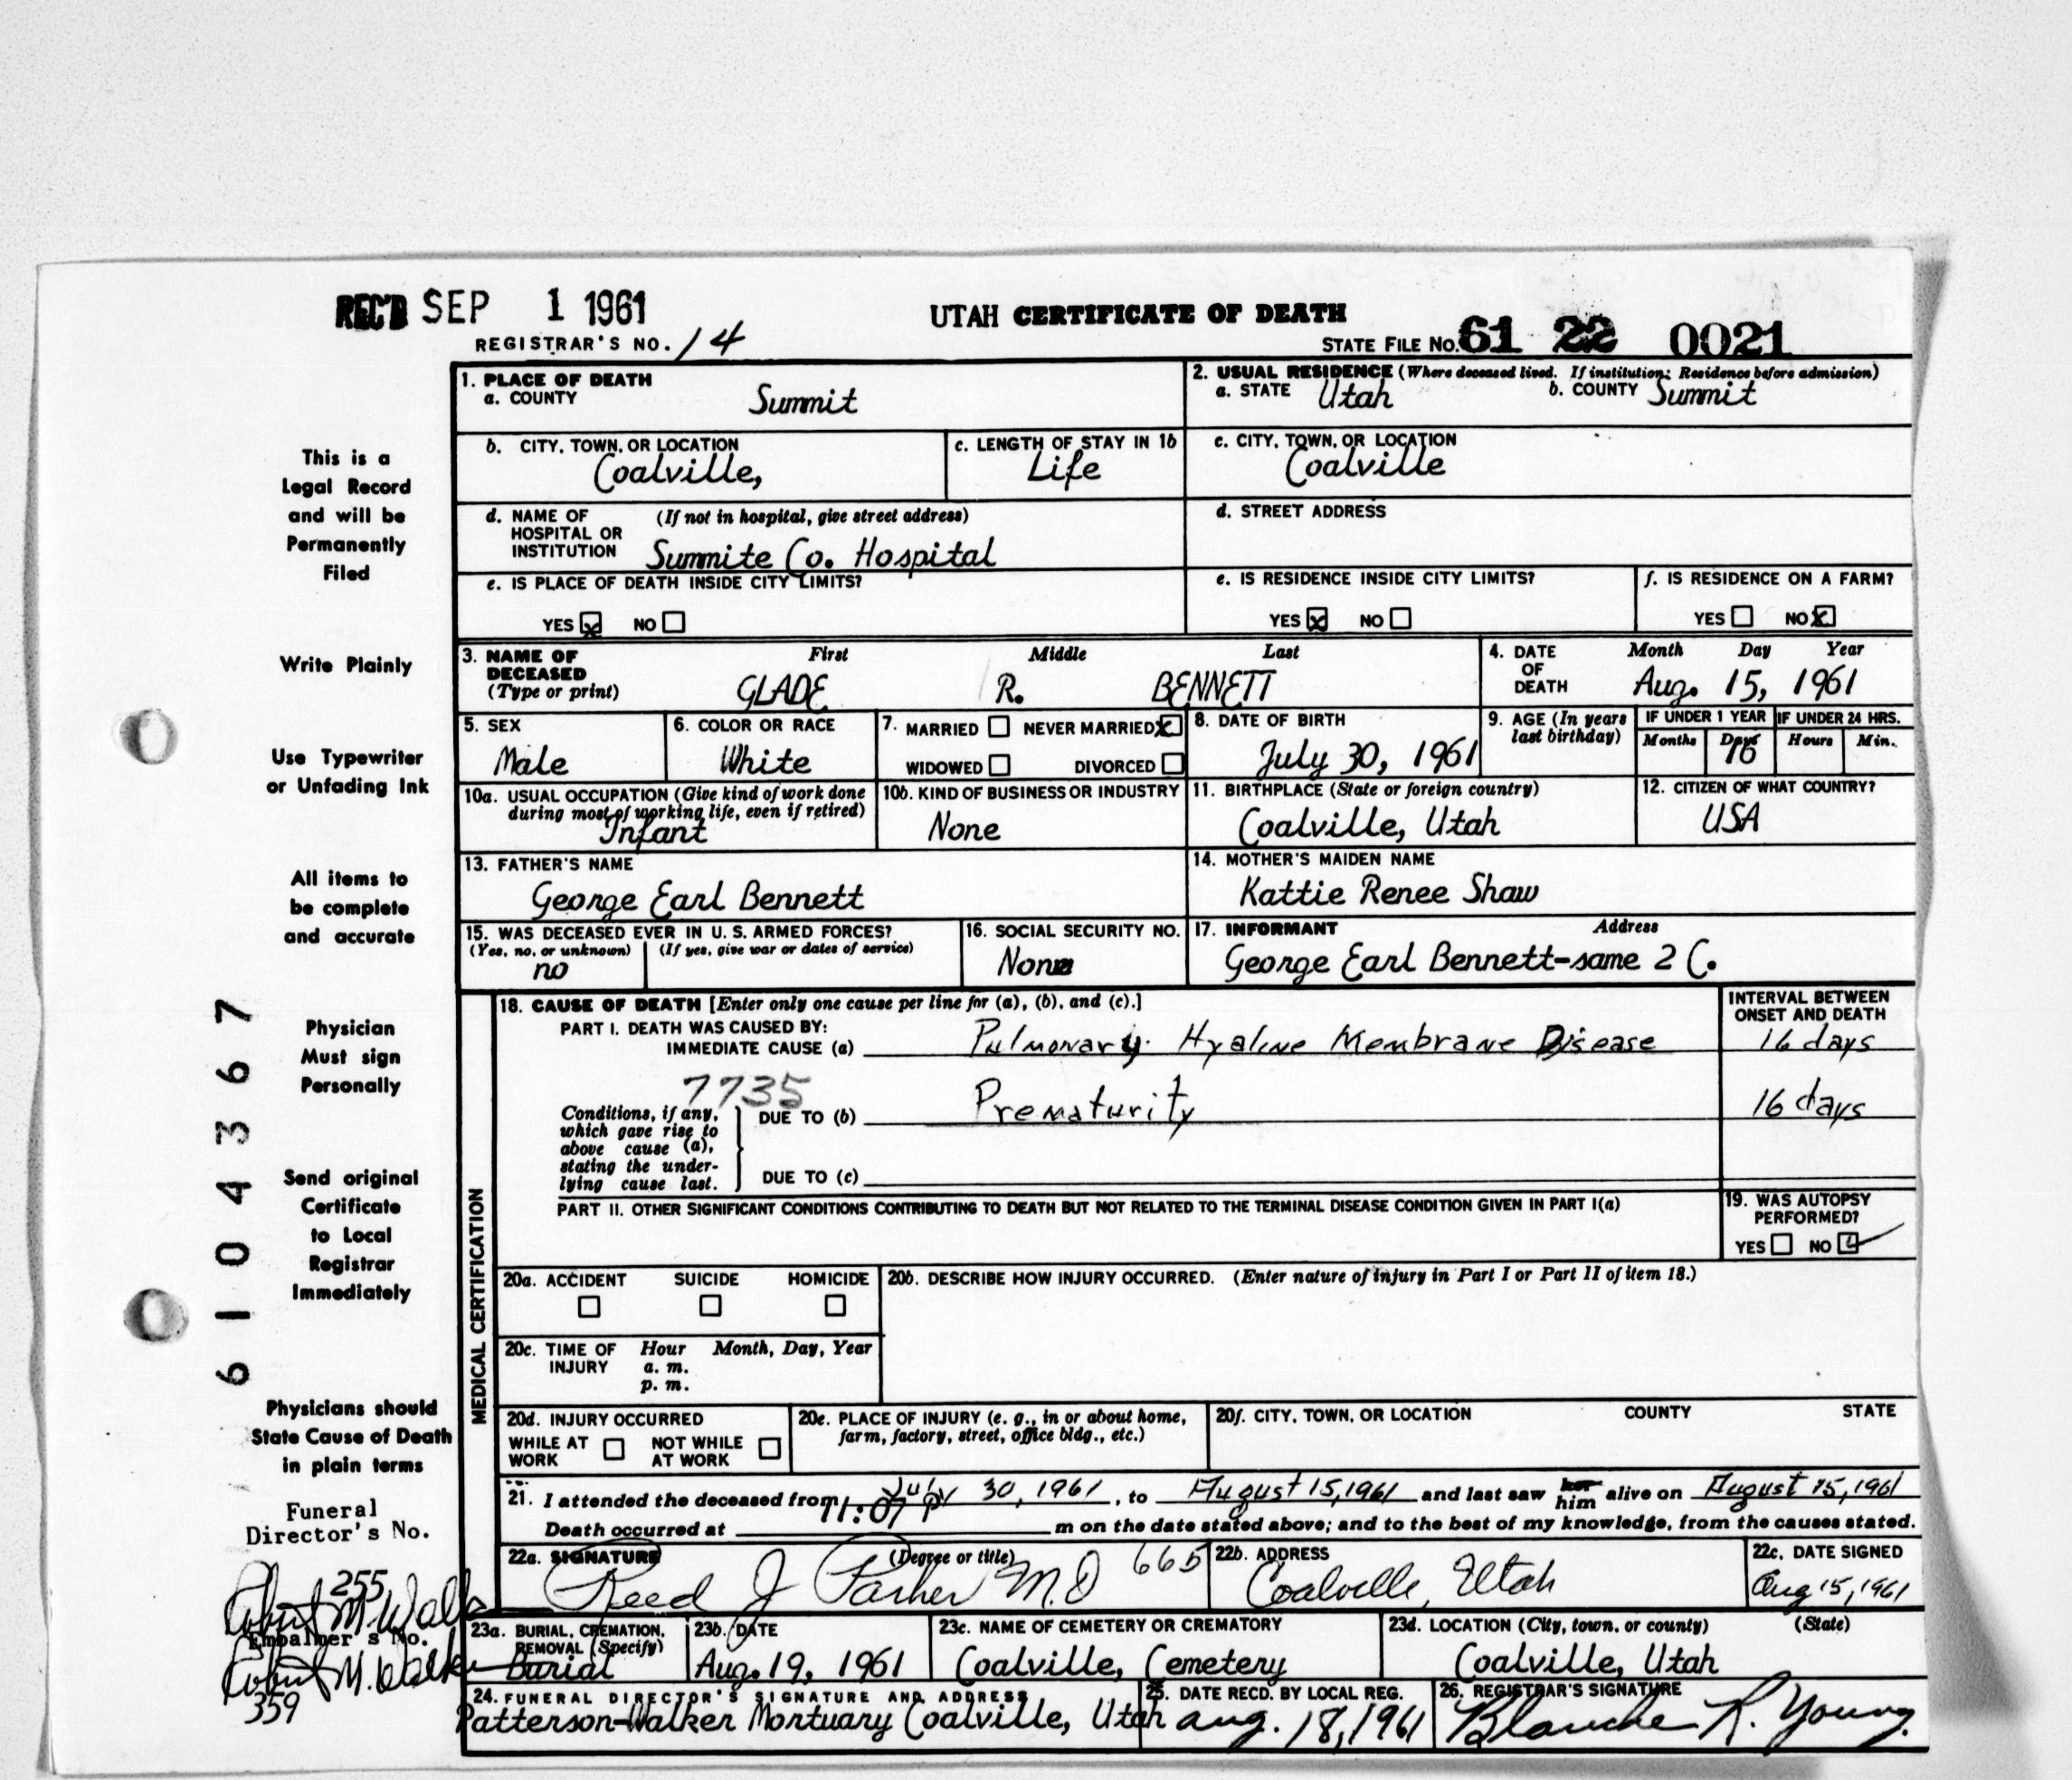 REC'D SEP 1 1961
UTAH CERTIFICATE OF DEATH
REGISTRAR'S NO. 14
STATE FILE NO. 61 22 0021
1. PLACE OF DEATH
a. COUNTY Summit
2. USUAL RESIDENCE (Where deceased lived. If institution: Residence before admission)
a. STATE Utah b. COUNTY Summit
b. CITY, TOWN, OR LOCATION
Coalville,
c. LENGTH OF STAY IN 1b
Life
c. CITY, TOWN, OR LOCATION
Coalville
d. NAME OF HOSPITAL OR INSTITUTION (If not in hospital, give street address)
Summite Co. Hospital
d. STREET ADDRESS
e. IS PLACE OF DEATH INSIDE CITY LIMITS?
YES x NO
e. IS RESIDENCE INSIDE CITY LIMITS?
YES x NO
f. IS RESIDENCE ON A FARM?
YES NO x
3. NAME OF DECEASED (Type or print)
First Middle Last
GLADE R. BENNETT
4. DATE OF DEATH
Month Day Year
Aug. 15, 1961
5. SEX
Male
6. COLOR OR RACE
White
7. MARRIED NEVER MARRIED x
WIDOWED DIVORCED
8. DATE OF BIRTH
July 30, 1961
9. AGE (In years last birthday)
IF UNDER 1 YEAR IF UNDER 24 HRS.
Months Days Hours Min.
16
10a. USUAL OCCUPATION (Give kind of work done during most of working life, even if retired)
Infant
10b. KIND OF BUSINESS OR INDUSTRY
None
11. BIRTHPLACE (State or foreign country)
Coalville, Utah
12. CITIZEN OF WHAT COUNTRY?
USA
13. FATHER'S NAME
George Earl Bennett
14. MOTHER'S MAIDEN NAME
Kattie Renee Shaw
15. WAS DECEASED EVER IN U. S. ARMED FORCES?
(Yes, no, or unknown) (If yes, give war or dates of service)
no
16. SOCIAL SECURITY NO.
None
17. INFORMANT Address
George Earl Bennett-same 2 C.
MEDICAL CERTIFICATION
18. CAUSE OF DEATH [Enter only one cause per line for (a), (b), and (c).]
INTERVAL BETWEEN ONSET AND DEATH
PART I. DEATH WAS CAUSED BY:
IMMEDIATE CAUSE (a) Pulmonary Hyaline Membrane Disease 16 days
7735
Conditions, if any, which gave rise to above cause (a), stating the underlying cause last.
DUE TO (b) Prematurity 16 days
DUE TO (c)
PART II. OTHER SIGNIFICANT CONDITIONS CONTRIBUTING TO DEATH BUT NOT RELATED TO THE TERMINAL DISEASE CONDITION GIVEN IN PART I(a)
19. WAS AUTOPSY PERFORMED?
YES NO ✓
20a. ACCIDENT SUICIDE HOMICIDE
20b. DESCRIBE HOW INJURY OCCURRED. (Enter nature of injury in Part I or Part II of item 18.)
20c. TIME OF INJURY Hour Month, Day, Year
a. m.
p. m.
20d. INJURY OCCURRED
WHILE AT WORK NOT WHILE AT WORK
20e. PLACE OF INJURY (e. g., in or about home, farm, factory, street, office bldg., etc.)
20f. CITY, TOWN, OR LOCATION COUNTY STATE
21. I attended the deceased from July 30, 1961, to August 15, 1961 and last saw her him alive on August 15, 1961
Death occurred at 11:07 P m on the date stated above; and to the best of my knowledge, from the causes stated.
22a. SIGNATURE (Degree or title)
Reed J Parker M.D 665
22b. ADDRESS
Coalville, Utah
22c. DATE SIGNED
Aug 15, 1961
23a. BURIAL, CREMATION, REMOVAL (Specify)
Burial
23b. DATE
Aug. 19, 1961
23c. NAME OF CEMETERY OR CREMATORY
Coalville, Cemetery
23d. LOCATION (City, town, or county) (State)
Coalville, Utah
24. FUNERAL DIRECTOR'S SIGNATURE AND ADDRESS
Patterson-Walker Mortuary Coalville, Utah
25. DATE RECD. BY LOCAL REG.
Aug. 18, 1961
26. REGISTRAR'S SIGNATURE
Blanche R. Young
This is a
Legal Record
and will be
Permanently
Filed
Write Plainly
Use Typewriter
or Unfading Ink
All items to
be complete
and accurate
Physician
Must sign
Personally
Send original
Certificate
to Local
Registrar
Immediately
Physicians should
State Cause of Death
in plain terms
Funeral
Director's No.
255
Robert M. Walker
Embalmer's No.
Robert M. Walker
359
6104367